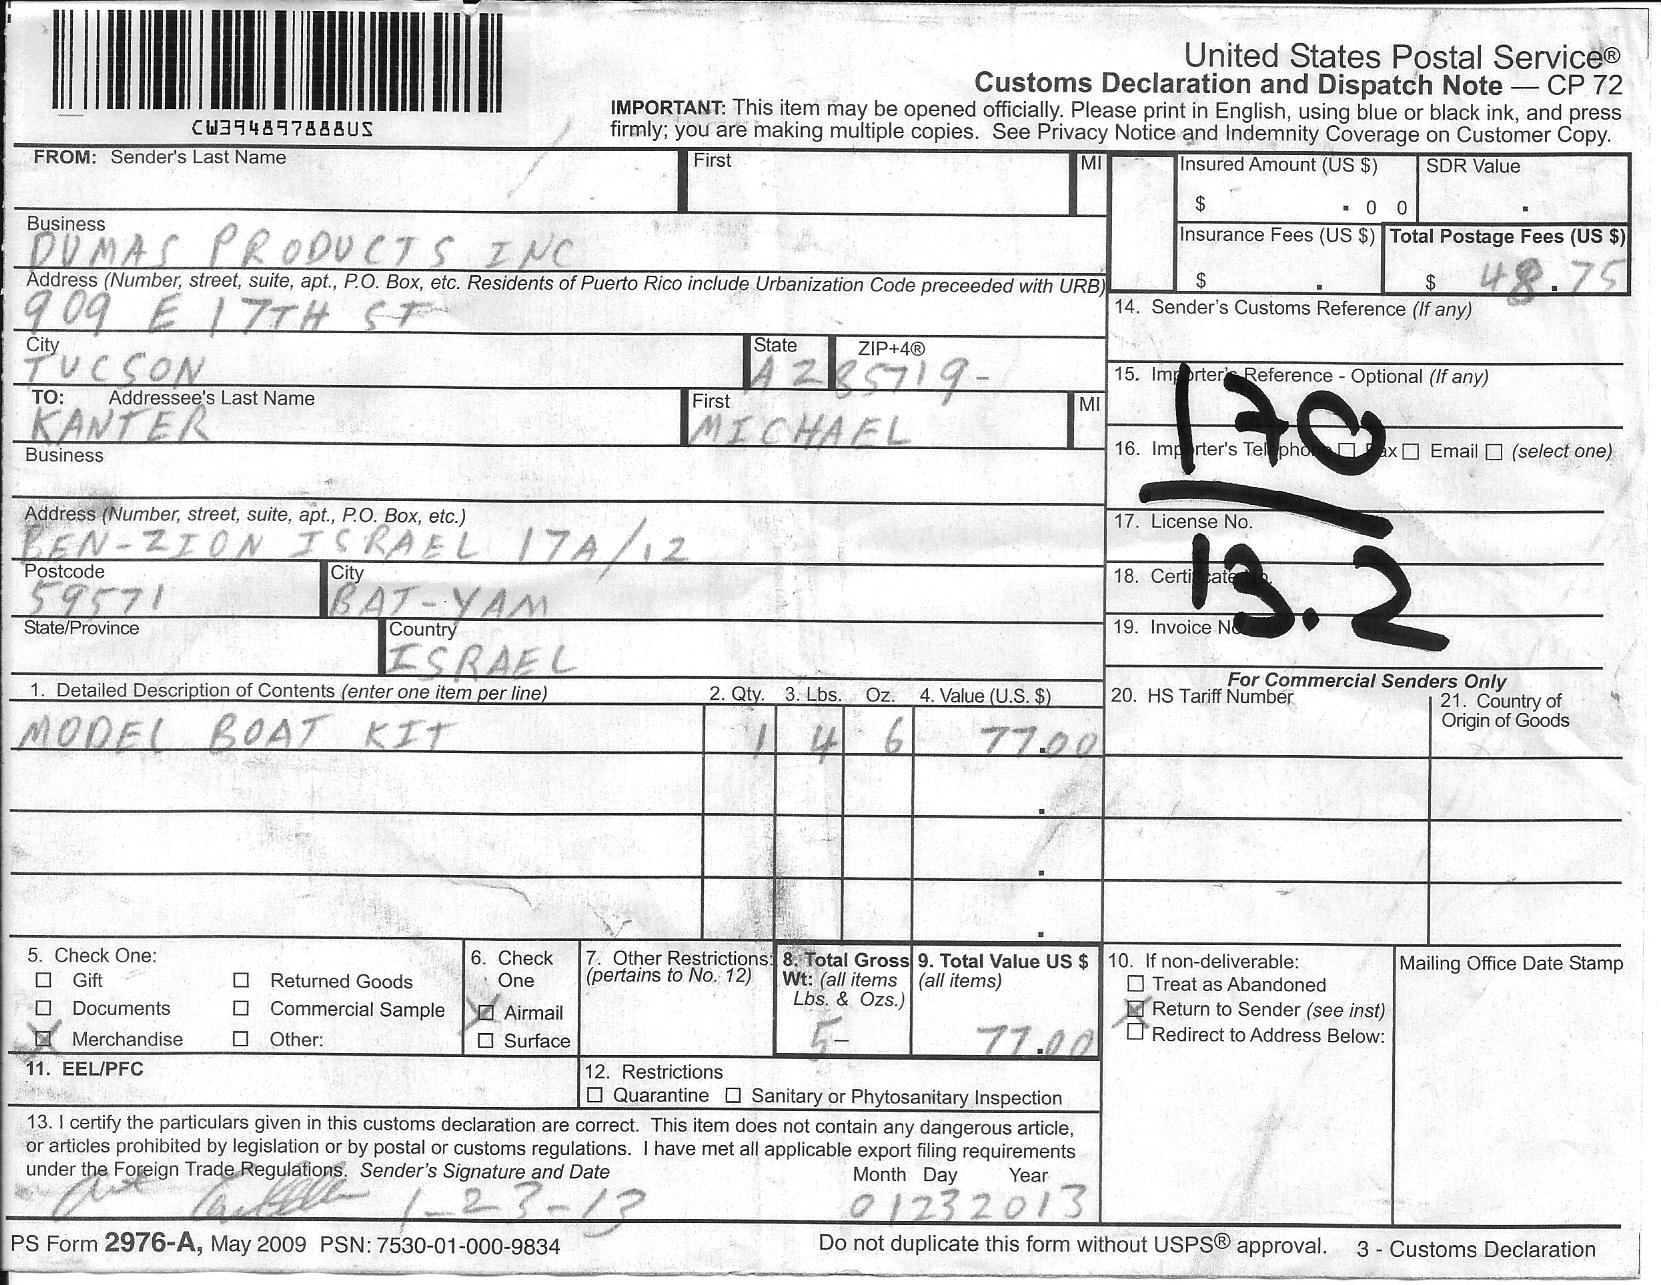 CW394897888US
United States Postal Service®
Customs Declaration and Dispatch Note — CP 72
IMPORTANT: This item may be opened officially. Please print in English, using blue or black ink, and press
firmly; you are making multiple copies. See Privacy Notice and Indemnity Coverage on Customer Copy.
FROM: Sender's Last Name
First
MI
Insured Amount (US $)
SDR Value
$ . 0 0
.
Business
DUMAS PRODUCTS INC
Insurance Fees (US $)
Total Postage Fees (US $)
$ .
$ 48.75
Address (Number, street, suite, apt., P.O. Box, etc. Residents of Puerto Rico include Urbanization Code preceeded with URB)
909 E 17TH ST
14. Sender's Customs Reference (If any)
City
State
ZIP+4®
TUCSON AZ 85719-
15. Importer's Reference - Optional (If any)
170
TO: Addressee's Last Name
First
MI
KANTER MICHAEL
16. Importer's Telephone Fax Email (select one)
Business
Address (Number, street, suite, apt., P.O. Box, etc.)
BEN-ZION ISRAEL 17A/12
17. License No.
13.2
Postcode
City
59571 BAT-YAM
18. Certificate No.
State/Province
Country
ISRAEL
19. Invoice No.
For Commercial Senders Only
1. Detailed Description of Contents (enter one item per line)
2. Qty.
3. Lbs. Oz.
4. Value (U.S. $)
20. HS Tariff Number
21. Country of
Origin of Goods
MODEL BOAT KIT 1 4 6 77.00
5. Check One:
Gift
Returned Goods
Documents
Commercial Sample
Merchandise
Other:
6. Check
One
Airmail
Surface
7. Other Restrictions:
(pertains to No. 12)
8. Total Gross
Wt: (all items
Lbs. & Ozs.)
5-
9. Total Value US $
(all items)
77.00
10. If non-deliverable:
Treat as Abandoned
Return to Sender (see inst)
Redirect to Address Below:
Mailing Office Date Stamp
11. EEL/PFC
12. Restrictions
Quarantine Sanitary or Phytosanitary Inspection
13. I certify the particulars given in this customs declaration are correct. This item does not contain any dangerous article,
or articles prohibited by legislation or by postal or customs regulations. I have met all applicable export filing requirements
under the Foreign Trade Regulations. Sender's Signature and Date
Month Day Year
1-23-13
01232013
PS Form 2976-A, May 2009 PSN: 7530-01-000-9834
Do not duplicate this form without USPS® approval.
3 - Customs Declaration